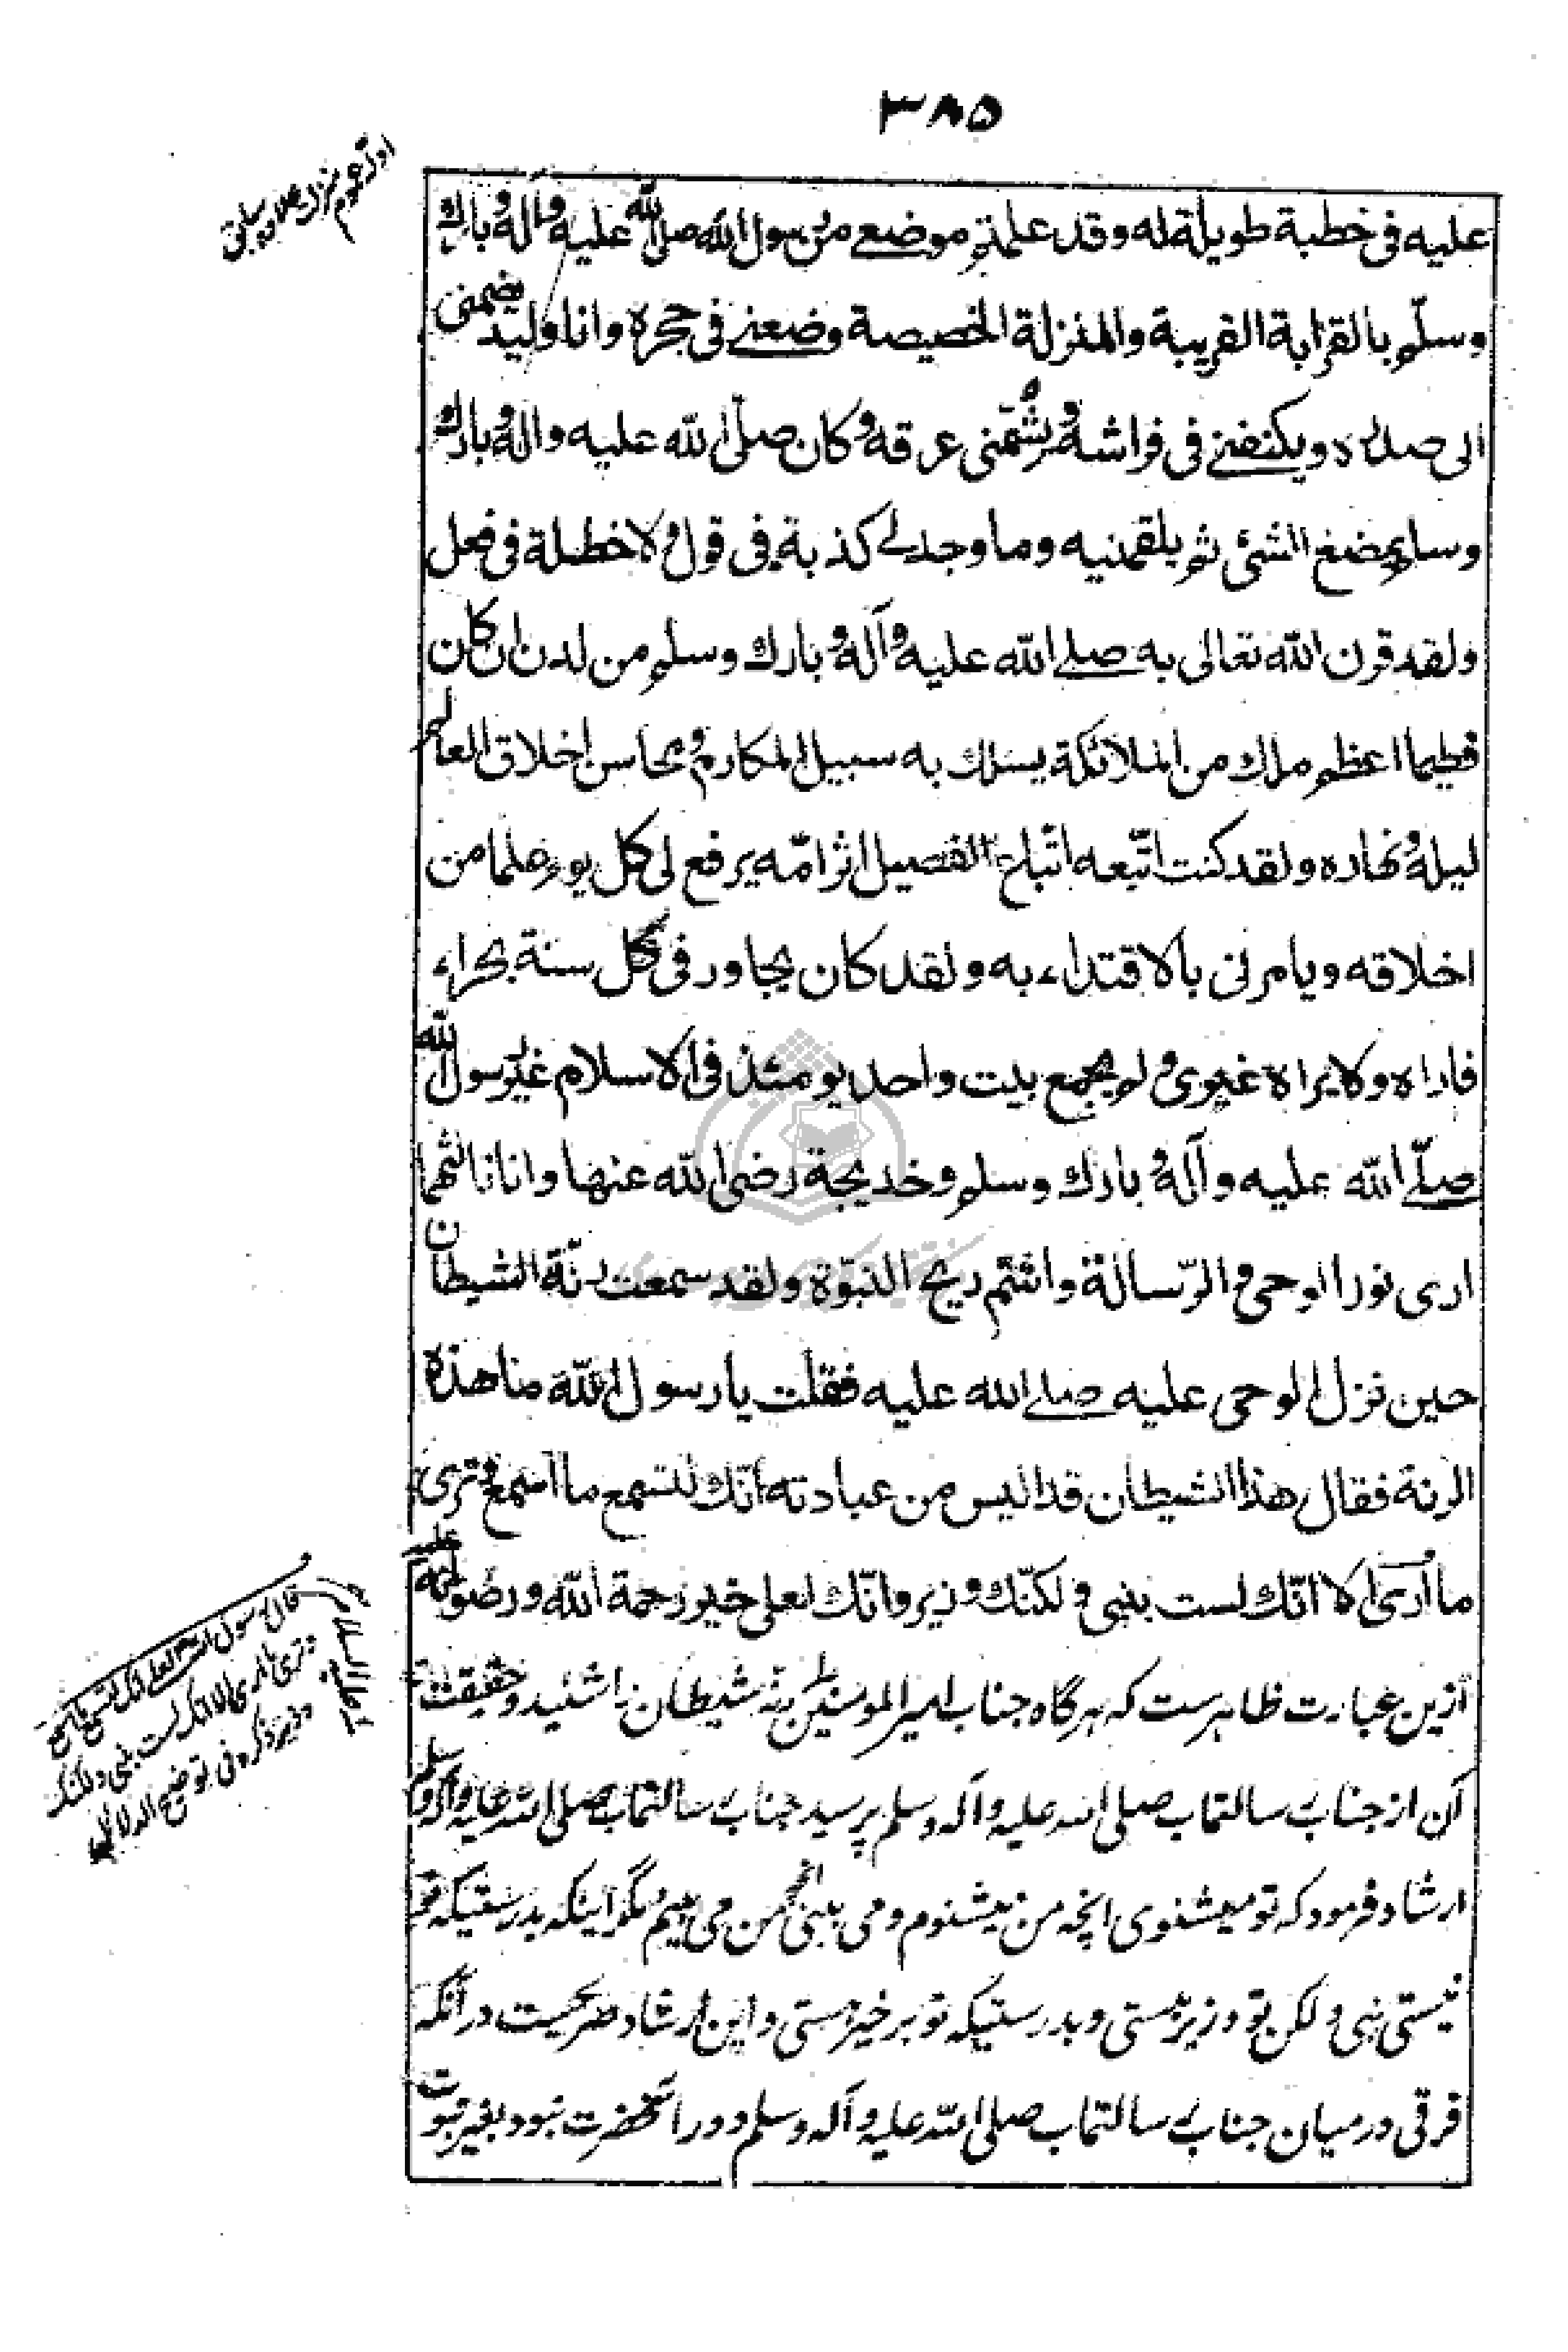 ۳۸۵
علیه فی خطبة طویلة له وقد علمتم موضعی من رسول الله صلی الله علیه وآله وبارك
وسلم بالقرابة القریبة والمنزلة الخصیصة وضعنی فی حجره وانا ولید یضمنی
الی صدره ویکنفنی فی فراشه ویشمنی عرقه وکان صلی الله علیه واله وبارك
وسلم یمضغ الشئ ثم یلقمنیه وما وجد لی کذبة فی قول ولا خطلة فی فعل
ولقد قرن الله تعالی به صلے الله علیه وآله وبارك وسلم من لدن ان کان
فطیما اعظم ملك من الملائکة یسلك به سبیل المکارم ومحاسن اخلاق العالم
لیله ونهاره ولقد کنت اتبعه اتباع الفصیل اثر امّه یرفع لی کل یوم علما من
اخلاقه ویامرنی بالاقتداء به ولقد کان یجاور فی کل سنة بحراء
فاراه ولا یراه غیری ولم یجمع بیت واحد یومئذ فی الاسلام غیر رسول الله
صلّے الله علیه وآله وبارك وسلم وخدیجة رضی الله عنها وانا ثالثهما
اری نور الوحی والرّسالة واشتم ریح النبوّة ولقد سمعت رنّة الشیطان
حین نزل الوحی علیه صلے الله علیه فقلت یا رسول الله ما هذه
الرنة فقال هذا الشیطان قد ایس من عبادته انّك لتسمع ما اسمع وتری
ما اری الا انّك لست بنبی ولکنّك وزیر وانّك لعلی خیر رحمة الله ورضوانه علیه
ازین عبارت ظاهرست که هرگاه جناب امیر المومنین رنۀ شیطان را شنید وحقیقت
آن از جناب رسالتماب صلی الله علیه وآله وسلم پرسید جناب رسالتماب صلی الله علیه وآله وسلم
ارشاد فرمود که تو میشنوی انچه من میشنوم و می بینی انچه من می بینم مگر اینکه بدرستیکه تو
نیستی نبی ولکن تو وزیر هستی وبدرستیکه تو بر خیر هستی واین ارشاد صریحست در آنکه
فرقی درمیان جناب رسالتماب صلی الله علیه وآله وسلم و در آنحضرت نبود بغیر نبوت
علیه السلام
قال رسول الله لعلی انك تسمع ما اسمع
وتری ما اری الا انك لست بنبی ولکنك
وزیر ذکره فی توضیح الدلائل